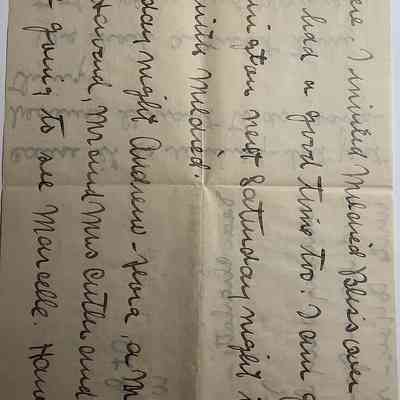 ere. I invited Mildred Bliss over
had a good time too. I am g
ington next Saturday night
with Mildred.
day night Andrew - a M
Howard, Mr and Mrs Cutler and
going to see Marcelle.